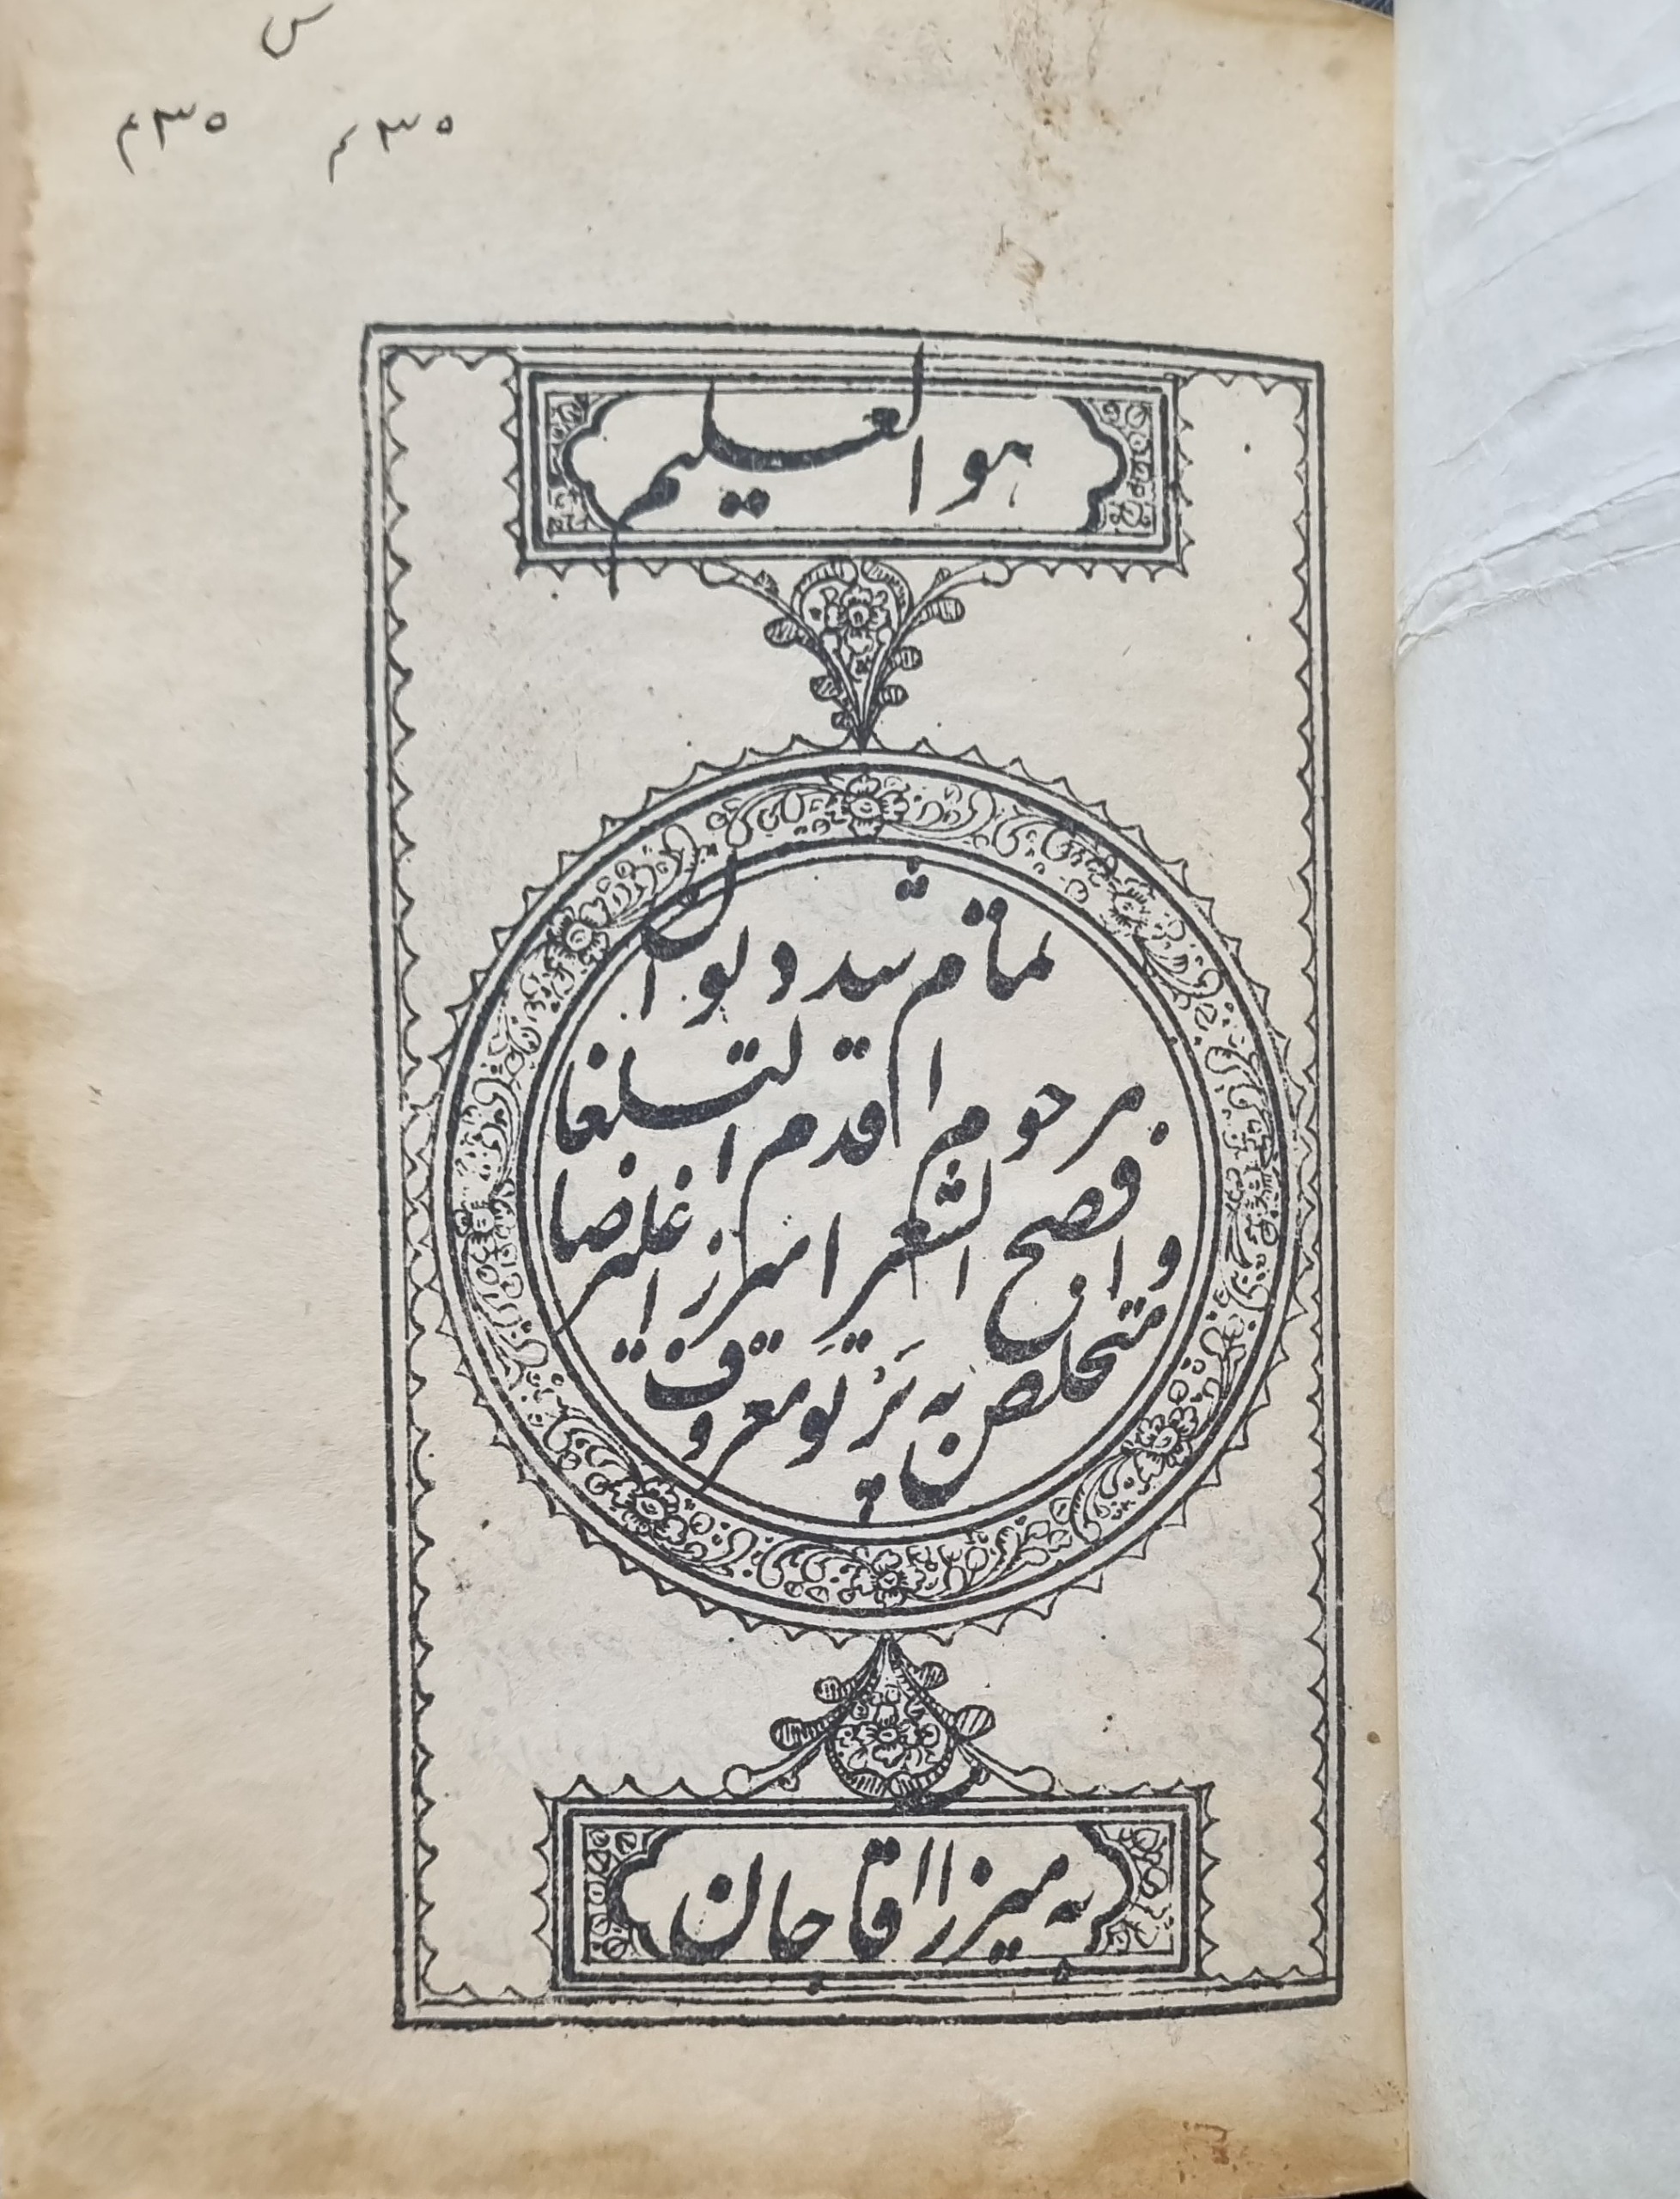 س
۴۳۵ ۴۳۵
هو العلیم
تمام شد دیوان
مرحوم اقدم البلغا
و افصح الشعرا میرزا علیرضا
متخلص به پَرتَو معروف
به میرزا آقاجان